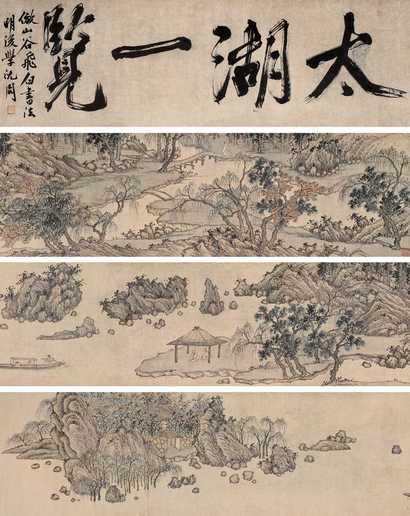 太湖一覽
倣山谷飛白書法
明後學沈周